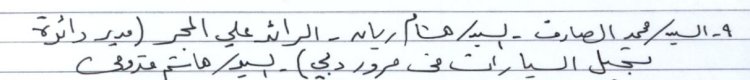 ٩- السيد/ محمد الصارف - السيد/ هشام ريان - الرائد علي المحر (مدير دائرة
تسجيل السيارات في مرور دبي) - السيد/ هاشم قدوهي